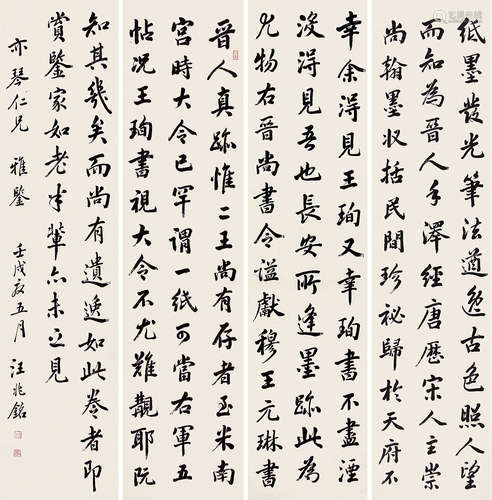 紙墨發光筆法遒逸古色照人望
而知為晉人手澤經唐歷宋人主崇
尚翰墨收括民間珍祕歸於天府不
幸余得見王珣又幸珣書不盡湮
沒得見吾也長安所逢墨跡此為
尤物右晉尚書令謚獻穆王元琳書
晉人真跡惟二王尚有存者至米南
宮時大令已罕謂一紙可當右軍五
帖況王珣書視大令不尤難覯耶阮
知其幾矣而尚有遺逸如此卷者即
賞鑒家如老米輩亦未之見
亦琴仁兄 雅鑒 壬戌夏五月 汪兆銘